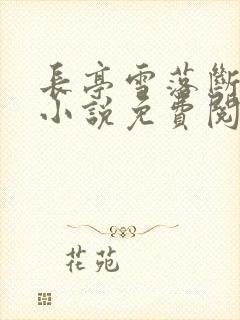 長亭雪落斷
小說免費閱
花苑